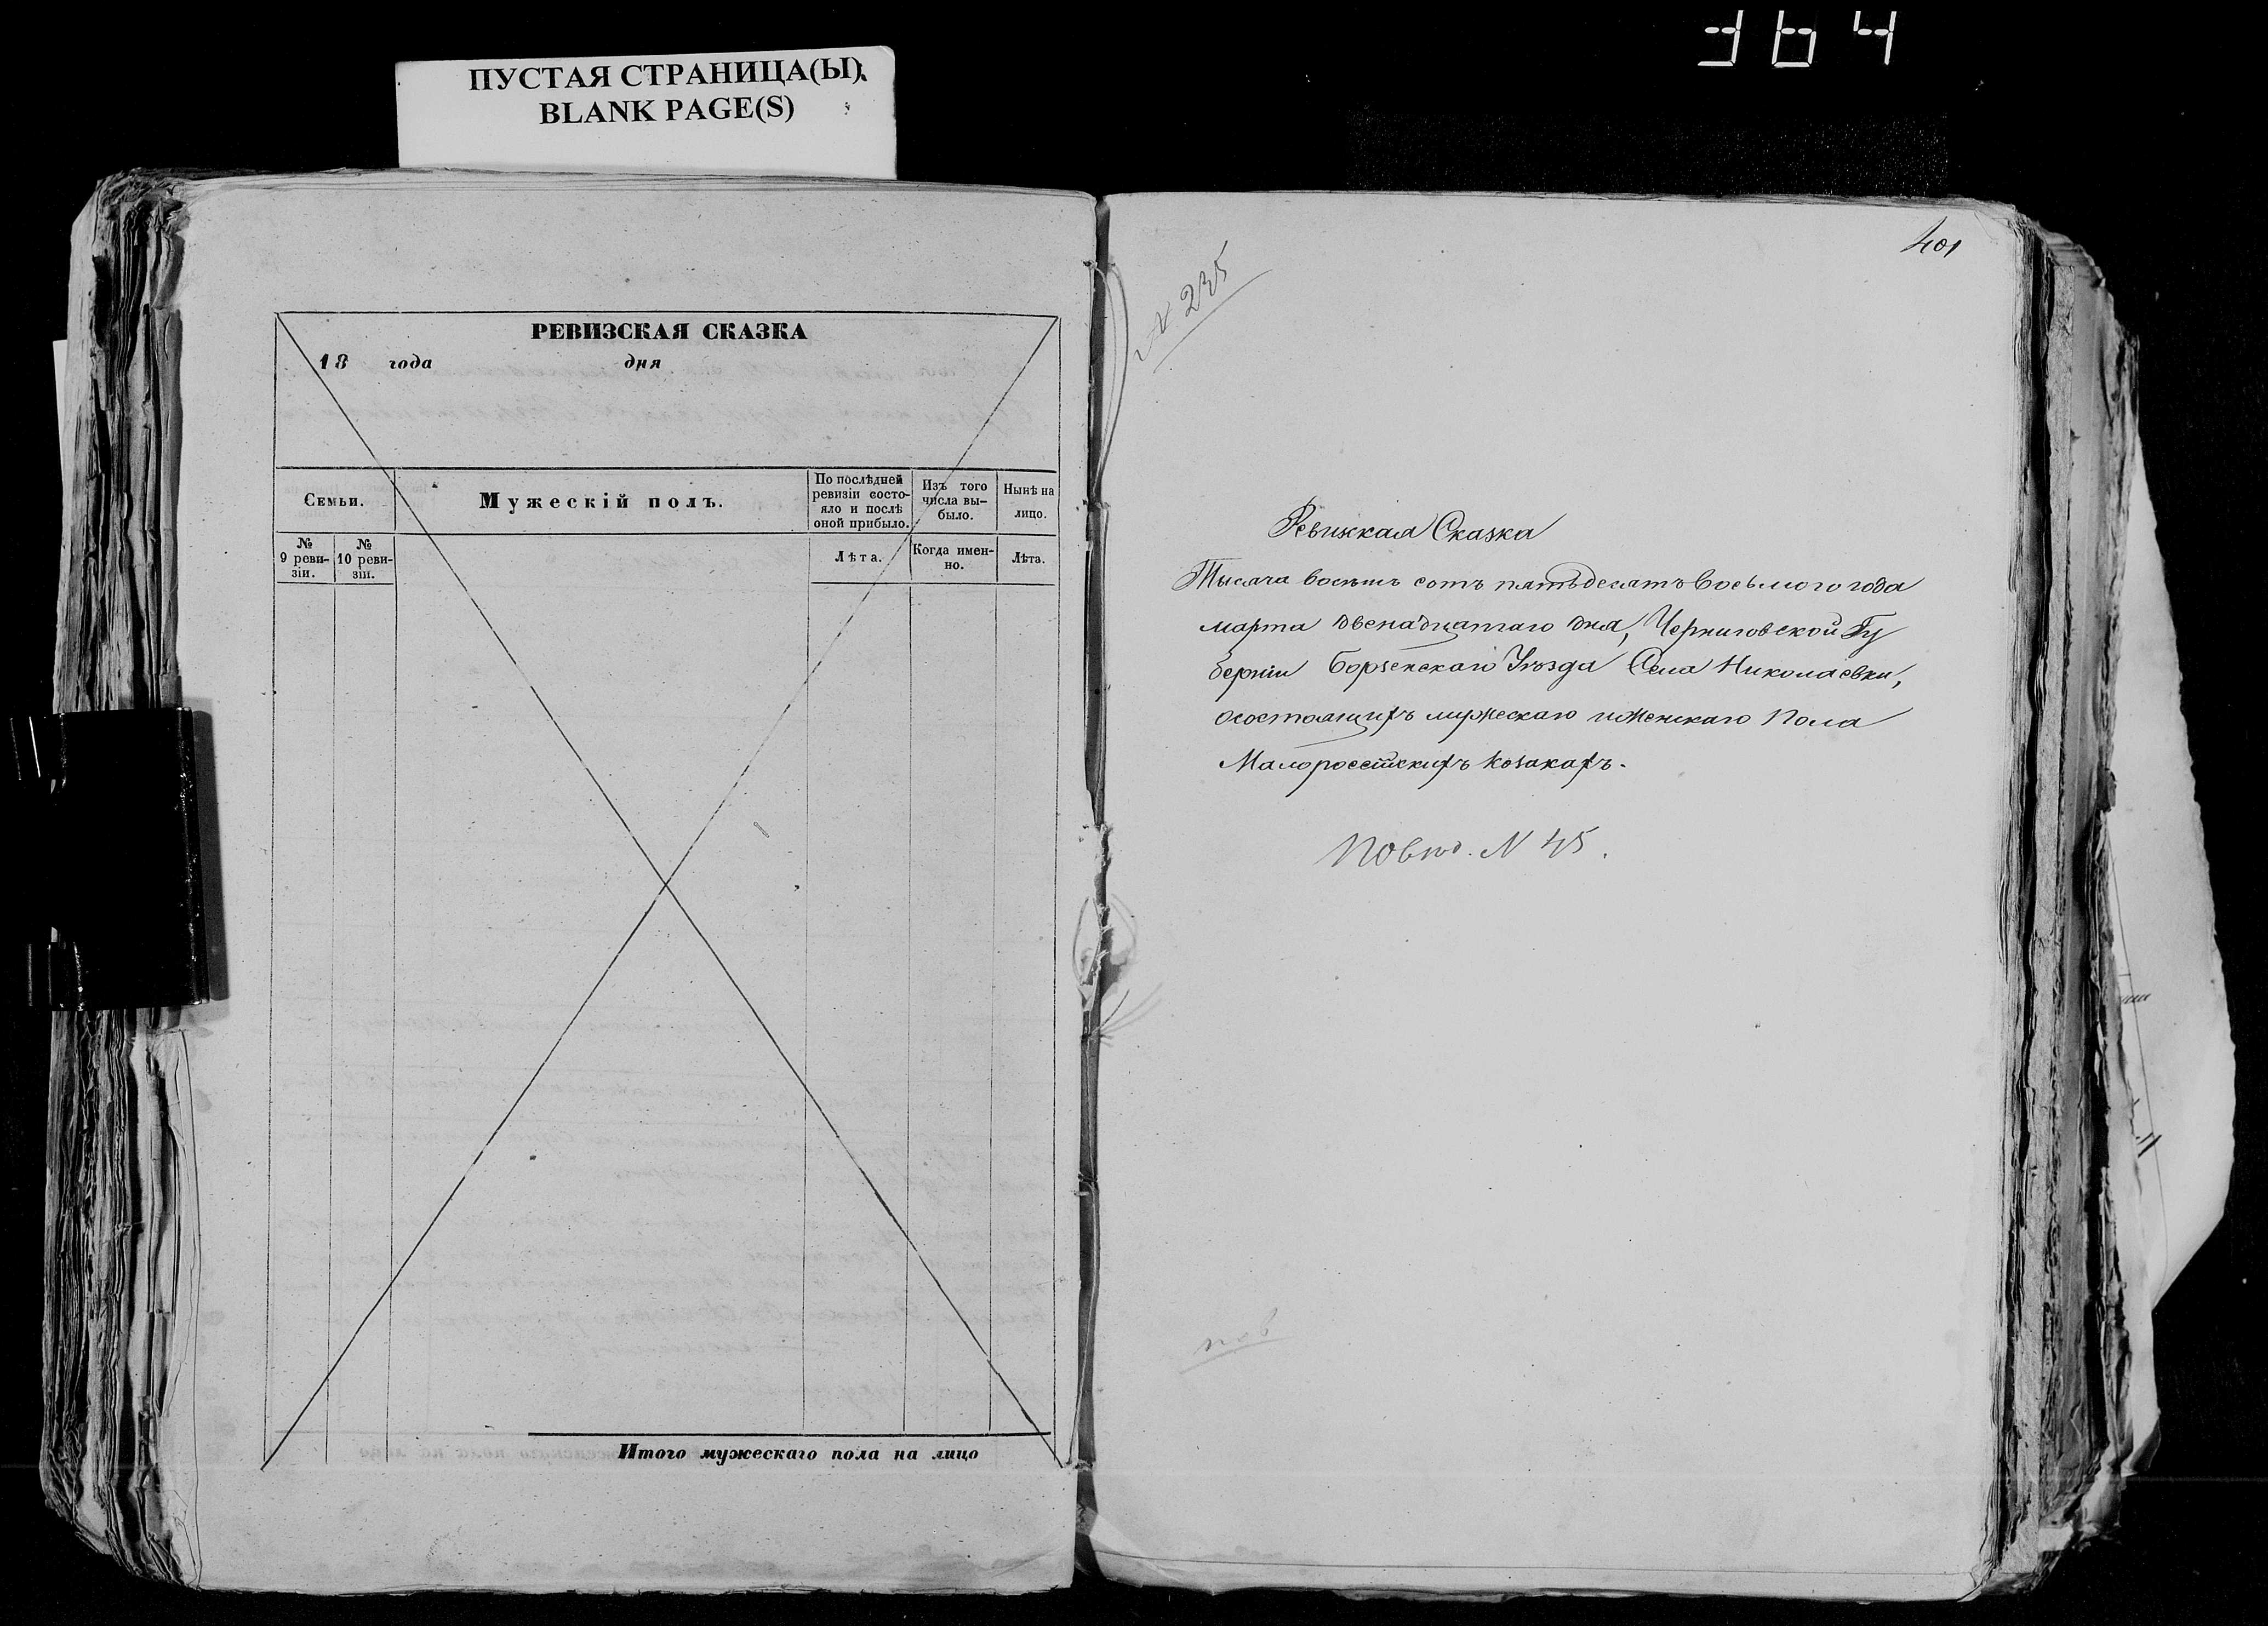 364
ПУСТАЯ СТРАНИЦА(Ы)
BLANK PAGE(S)
РЕВИЗСКАЯ СКАЗКА
18 года дня
Семьи.
Мужескій полъ.
По послѣдней
ревизіи состо-
яло и послѣ
оной прибыло.
Изъ того
числа вы-
было.
Нынѣ на
лицо.
№
9 реви-
зіи.
№
10 реви-
зіи.
Лѣта.
Когда имен-
но.
Лѣта.
Итого мужескаго пола на лицо
401
N 235
Ревижкая Сказка
Тысяча восемь сотъ пятьдесятъ восьмого года
марта двенадцатаго дня, Черниговской Гу
берніи Борзенскаго Уѣзда Села Николаевки,
осостоящихъ мужескаго иженскаго Пола
Малороссійскихъ козакахъ.
N 45.